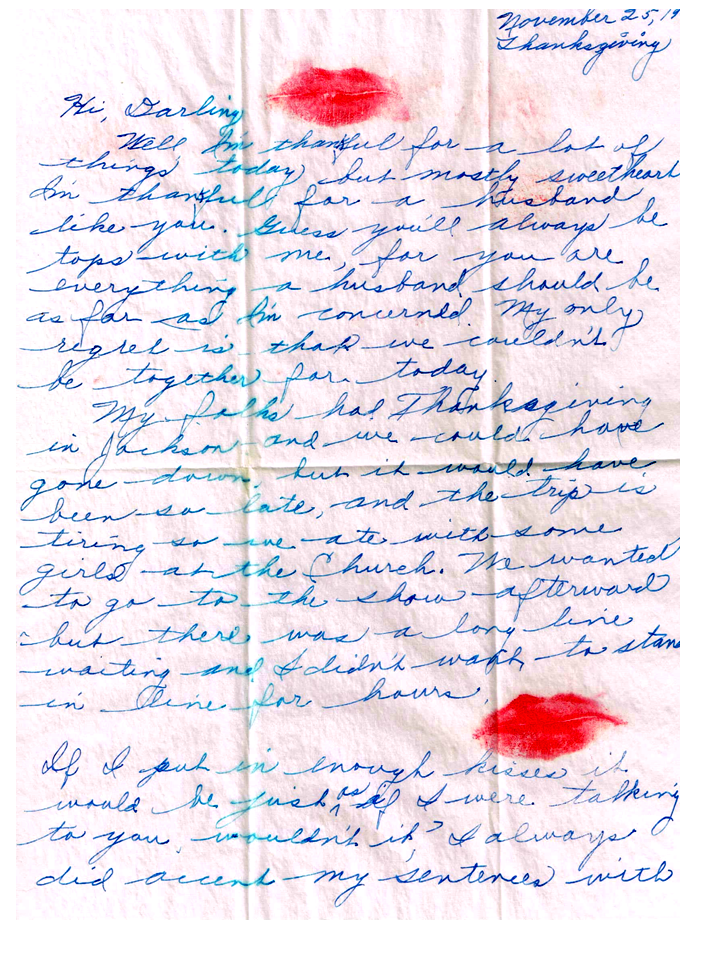 November 25, 19
Thanksgiving
Hi, Darling
Well I'm thankful for a lot of
things today, but mostly sweetheart
I'm thankful for a husband
like you. Guess you'll always be
tops with me, for you are
everything a husband should be
as far as I'm concerned. My only
regret is that we couldn't
be together for today.
My folks had Thanksgiving
in Jackson and we could have
gone down, but it would have
been so late, and the trip is
tiring so we ate with some
girls at the Church. We wanted
to go to the show afterward
but there was a long line
waiting and I didn't want to stand
in line for hours.
If I put in enough kisses it
would be just as if I were talking
to you, wouldn't it? I always
did accent my sentences with